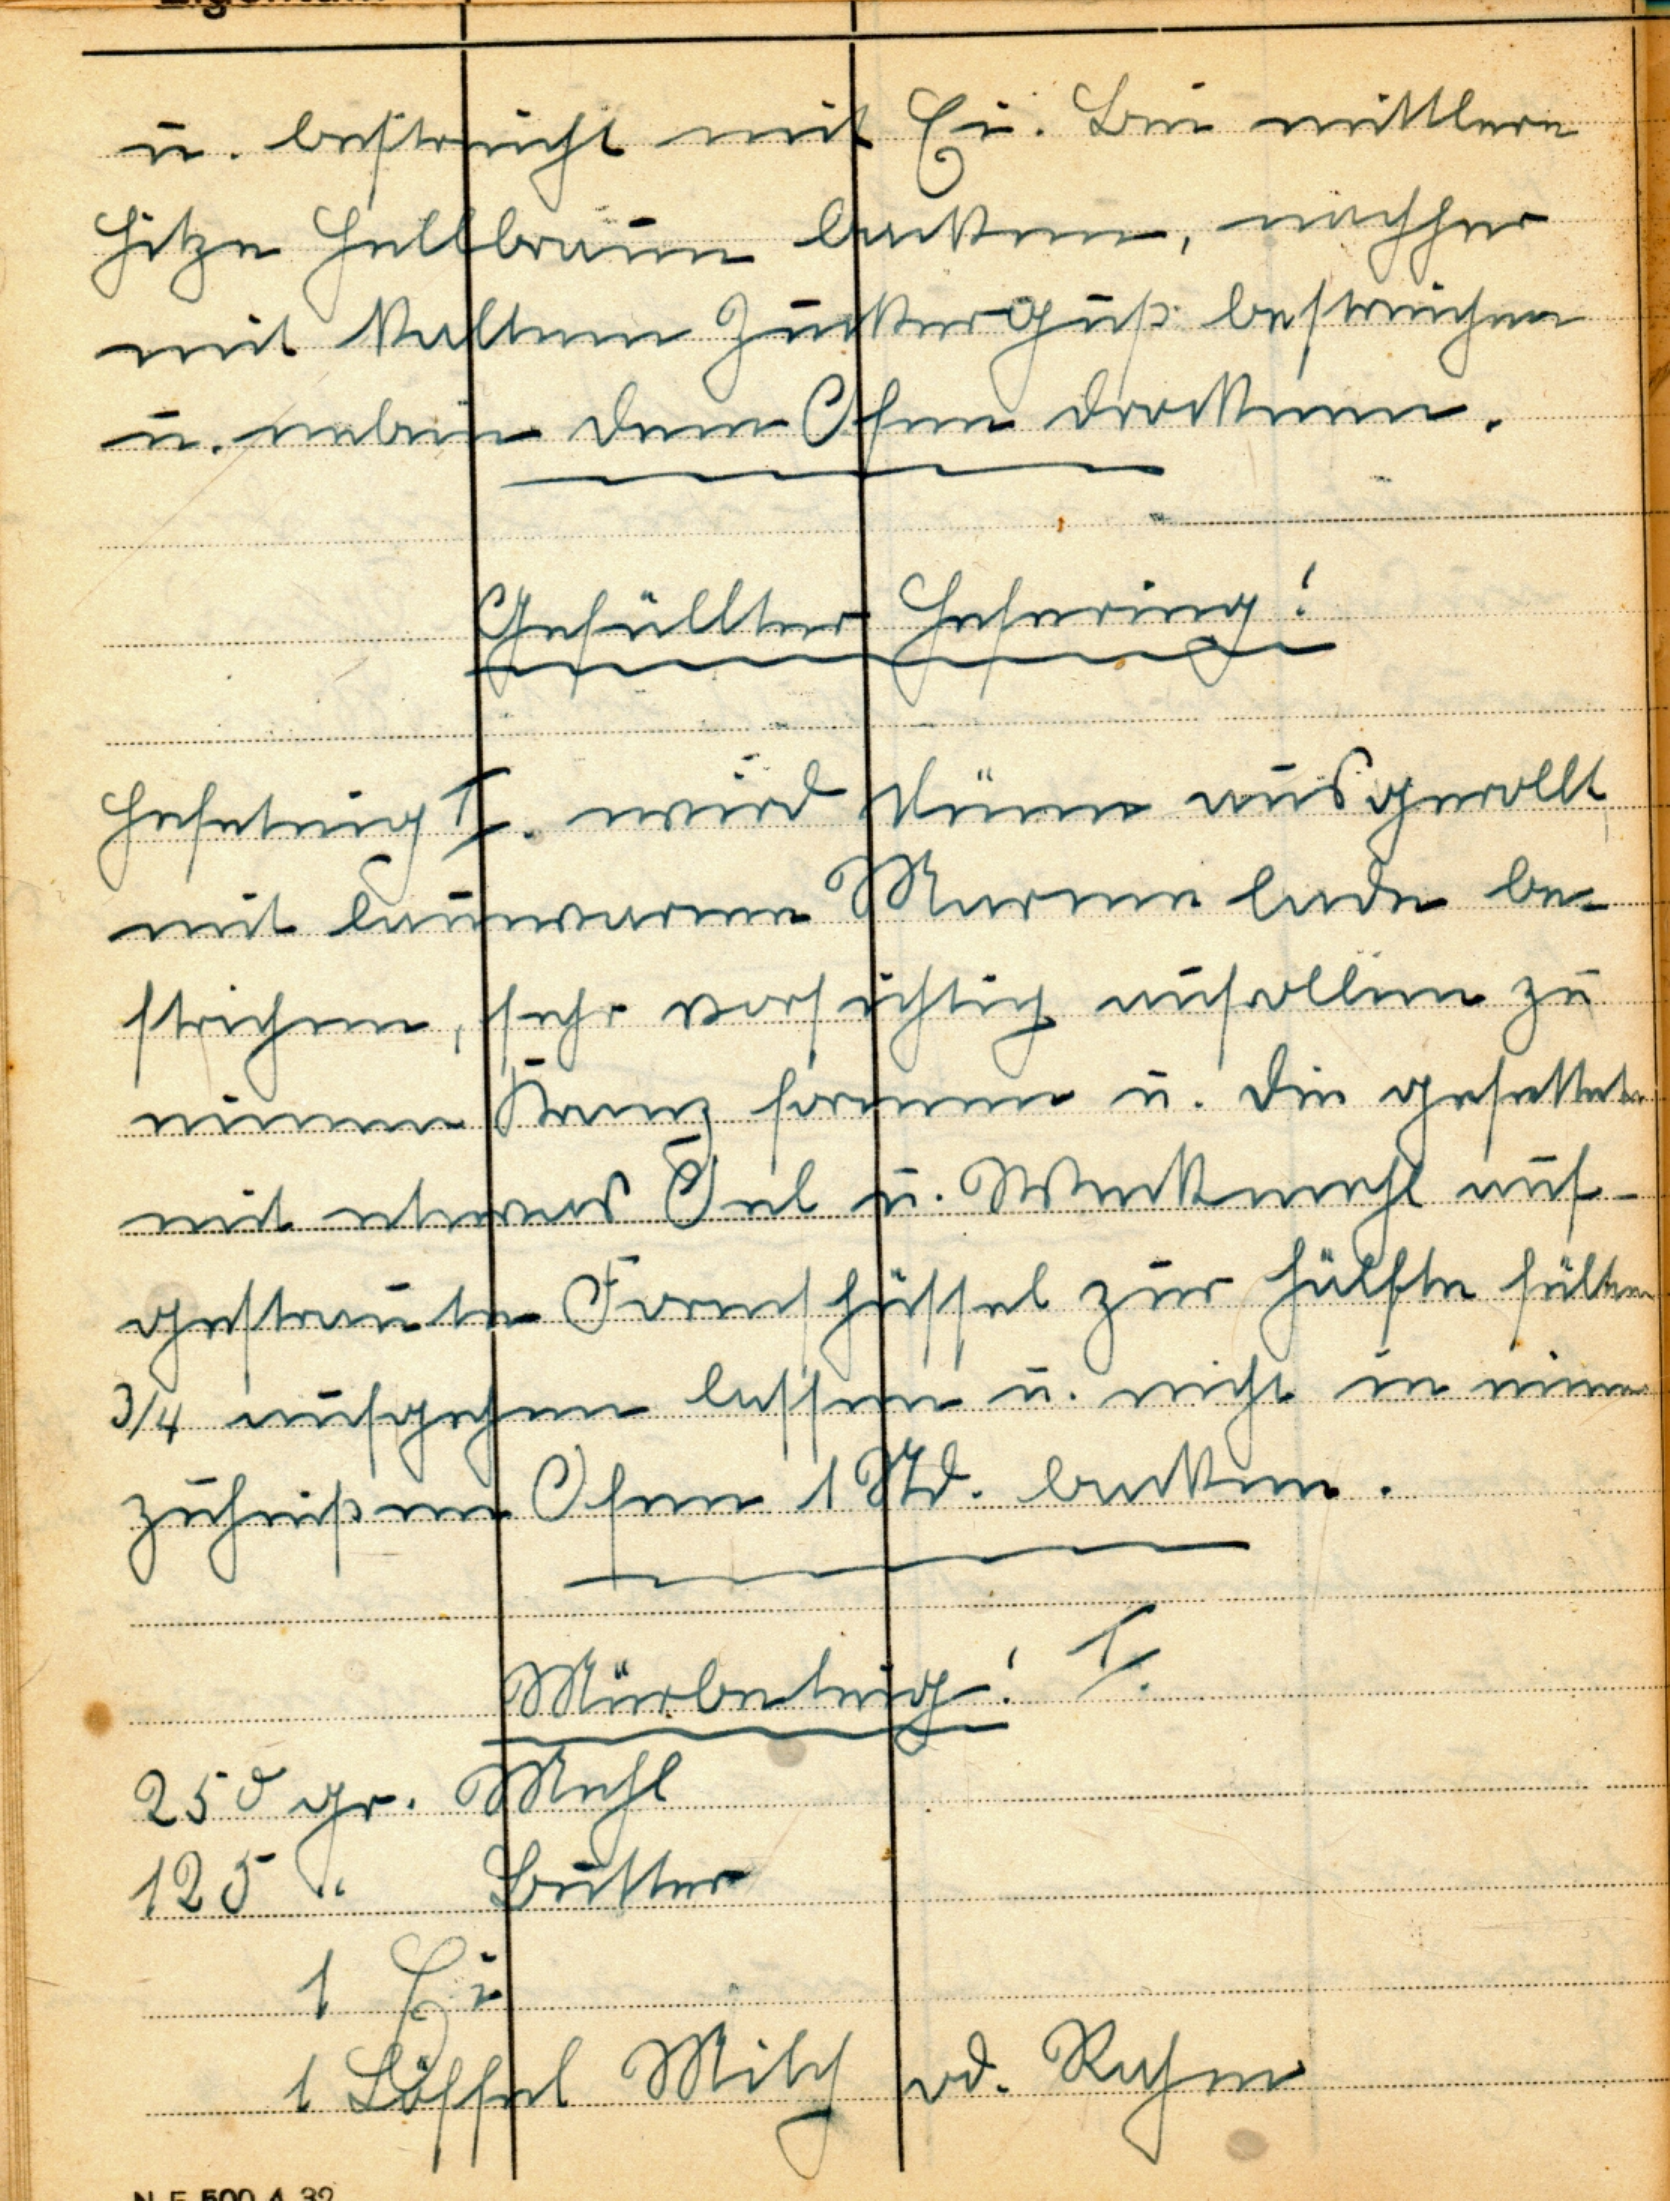 Eigentum
u. bestreicht mit Ei. Bei mittlere
Hitze hellbraun backen, nachher
mit kaltem Zuckerguß bestreichen
u. neben dem Ofen drocknen.
Gefüllter Hefering!
Hefeteig I. wird dünn ausgerollt
mit lauwarmen Marmelade be-
strichen, sehr vorsichtig aufrollen zu
einem Kranz formen u. die gefettete
mit etwas Öel u. Weckmehl auf-
gestreute Formschüssel zur hälfte füllen
3/4 aufgehen lassen u. nicht in einem
zuheißen Ofen 1 Std. backen.
Mürbeteig! I.
250 gr. Mehl
125 " Butter
1 Ei
1 Löffel Milch od. Rahm
N F 500 4 32